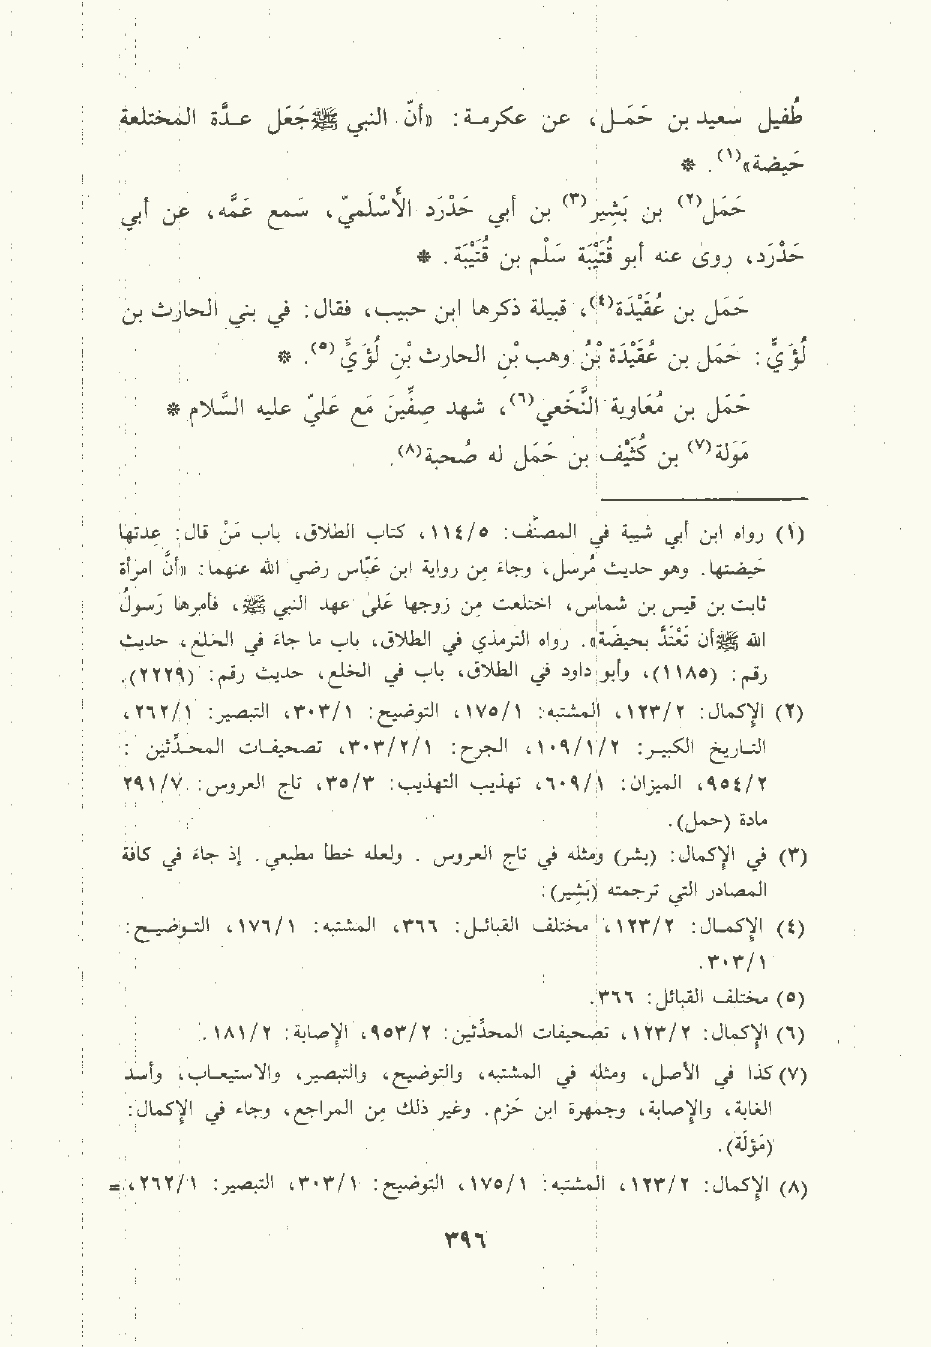 طُفيل سعيد بن حَمَـل، عن عكرمـة: «أنّ النبي ﷺ جَعَل عـدَّة المختلعة
حَيضة»(١). *
حَمَل(٢) بن بَشِير(٣) بن أبي حَدْرَد الأَسْلَميّ، سَمع عَمَّه، عن أبي
حَدْرَد، روى عنه أبو قُتَيْبَة سَلْم بن قُتَيْبَة. *
حَمَل بن عُقَيْدَة(٤)، قبيلة ذكرها ابن حبيب، فقال: في بني الحارث بن
لُؤَيّ: حَمَل بن عُقَيْدَة بْنُ وهب بْن الحارث بْن لُؤَيّ(٥). *
حَمَل بن مُعاوية النَّخَعي(٦)، شهد صِفِّينَ مَع عَليّ عليه السَّلام *
مَوَلة(٧) بن كُثَيْف بن حَمَل له صُحبة(٨).
(١) رواه ابن أبي شيبة في المصنَّف: ١١٤/٥، كتاب الطلاق، باب مَنْ قال: عِدتها
حَيضتها. وهو حديث مُرسل، وجاء مِن رواية ابن عَبّاس رضي الله عنهما: «أنَّ امرأة
ثابت بن قيس بن شماس، اختلعت مِن زوجها عَلىٰ عهد النبي ﷺ، فأمرها رَسولُ
الله ﷺ أن تَعْتَدَّ بحيضَة». رواه الترمذي في الطلاق، باب ما جاء في الخلع، حديث
رقم: (١١٨٥)، وأبو داود في الطلاق، باب في الخلع، حديث رقم: (٢٢٢٩).
(٢) الإكمال: ١٢٣/٢، المشتبه: ١٧٥/١، التوضيح: ٣٠٣/١، التبصير: ٢٦٢/١،
التـاريخ الكبـير: ١٠٩/١/٢، الجرح: ٣٠٣/٢/١، تصحيفـات المحـدِّثين :
٩٥٤/٢، الميزان: ٦٠٩/١، تهذيب التهذيب: ٣٥/٣، تاج العروس: ٢٩١/٧
مادة (حمل).
(٣) في الإكمال: (بشر) ومثله في تاج العروس . ولعله خطأ مطبعي. إذ جاء في كافة
المصادر التي ترجمته (بَشِير):
(٤) الإكمـال: ١٢٣/٢، مختلف القبائـل: ٣٦٦، المشتبه: ١٧٦/١، التـوضيـح:
٣٠٣/١.
(٥) مختلف القبائل: ٣٦٦.
(٦) الإكمال: ١٢٣/٢، تصحيفات المحدِّثين: ٩٥٣/٢، الإصابة: ١٨١/٢.
(٧) كذا في الأصل، ومثله في المشتبه، والتوضيح، والتبصير، والاستيعـاب، وأسد
الغابة، والإصابة، وجمهرة ابن حَزم. وغير ذلك مِن المراجع، وجاء في الإكمال:
(مَؤلَة).
(٨) الإكمال: ١٢٣/٢، المشتبه: ١٧٥/١، التوضيح: ٣٠٣/١، التبصير: ٢٦٢/١، =
٣٩٦